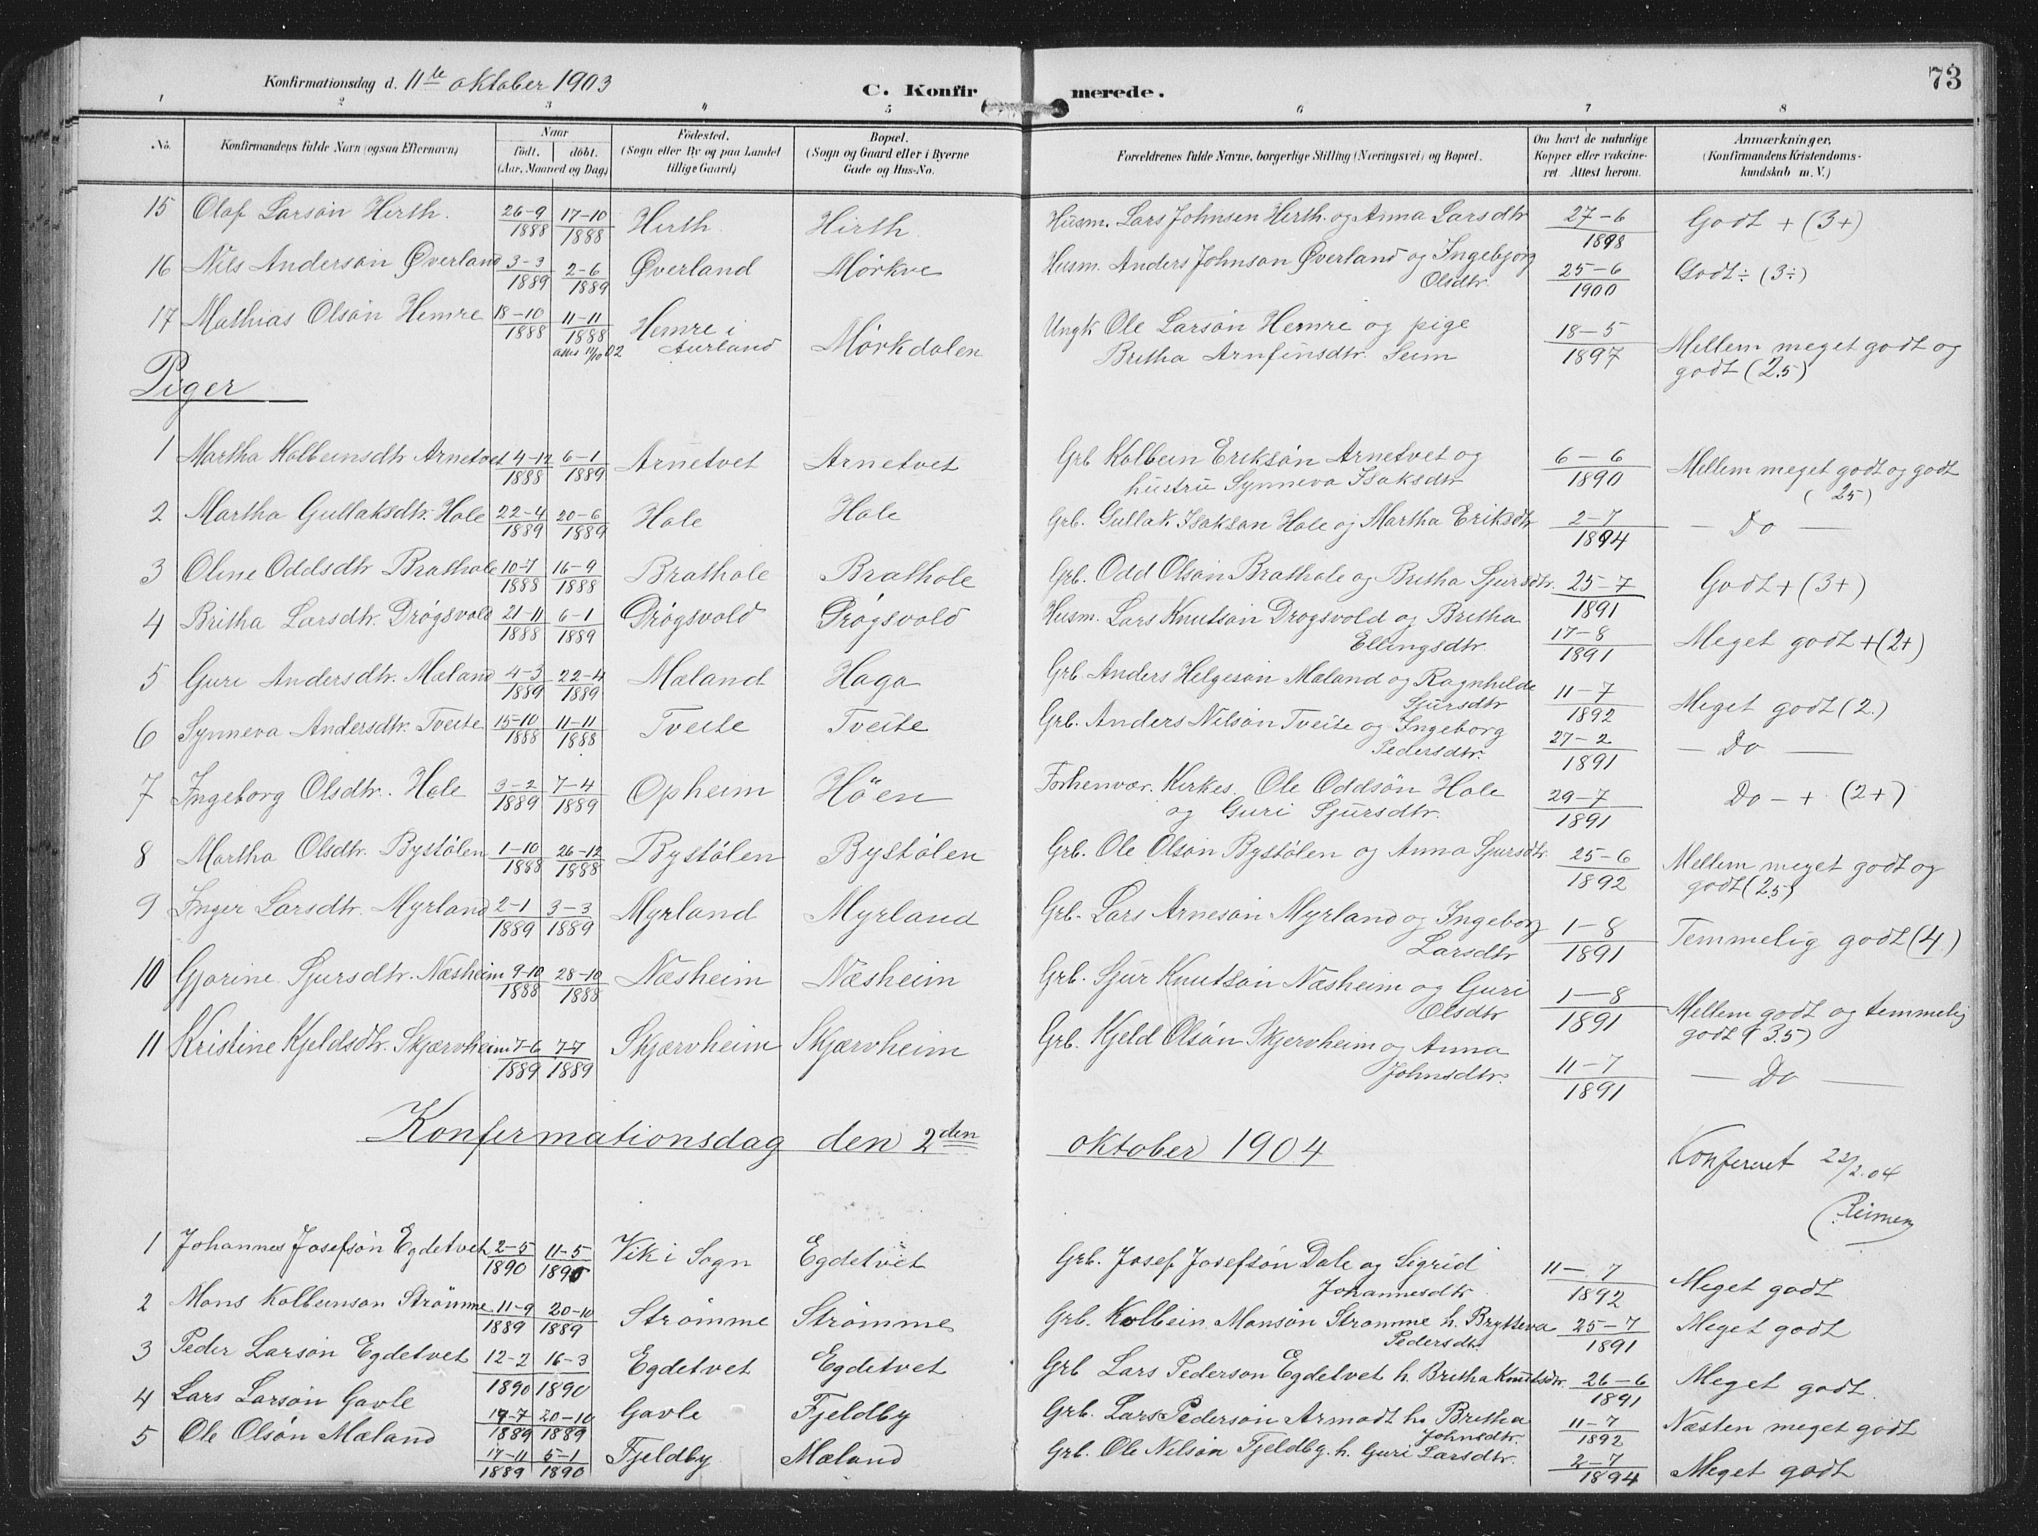 Konfirmationsdag d. 11te oktober 1903 C. Konfirmerede. 73
1 2 3 4 5 6 7 8
No. Konfirmandens fulde Navn (ogsaa Efternavn) Naar født. døbt. (Aar, Maaned og Dag) Fødested. (Sogn eller By og paa Landet tillige Gaard) Bopæl. (Sogn og Gaard eller i Byerne Gade og Hus-No. Forældrenes fulde Navne, borgerlige Stilling (Næringsvei) og Bopæl. Om havt de naturlige Kopper eller vakcineret Attest herom. Anmærkninger. (Konfirmandens Kristendomskundskab m. V.)
15 Olaf Larsøn Hirth. 26-9 1888 17-10 1888 Hirth. Hirth. Husm. Lars Johnsen Hirth. og Anna Larsdtr 27-6 1898 Godt + (3+)
16 Nils Andersøn Øverland 3-3 1889 2-6 1889 Øverland Mørkve Husm. Anders Johnsøn Øverland og Ingebjørg Olsdtr. 25-6 1900 Godt ÷ (3÷)
17 Mathias Olsøn Hemre 18-10 1888 11-11 1888 attes 11/10 02 Hemre i Aurland Mørkdalen Ungk Ole Larsøn Hemre og pige Britha Arnfinsdtr. Seim 18-5 1897 Mellem meget godt og godt (2.5)
Piger
1 Martha Kolbeinsdtr Arnetvet 4-12 1888 6-1 1889 Arnetvet Arnetvet Grb Kolbein Eriksøn Arnetvet og hustru Synneva Isaksdtr 6-6 1890 Mellem meget godt og godt (25)
2 Martha Gullaksdtr. Hole 22-4 1889 20-6 1889 Hole Hole Grb. Gullak Isaksøn Hole og Martha Eriksdtr 2-7 1894 — Do —
3 Oline Oddsdtr Brathole 10-7 1888 16-9 1888 Brathole Brathole Grb. Odd Olsøn Brathole og Britha Sjursdtr. 25-7 1891 Godt + (3+)
4 Britha Larsdtr. Drøgsvold 21-11 1888 6-1 1889 Drøgsvold Drøgsvold Husm. Lars Knutsøn Drogsvold og Britha Ellingsdtr. 17-8 1891 Meget godt + (2+)
5 Guri Andersdtr. Mæland 4-3 1889 22-4 1889 Mæland Haga Grb. Anders Helgesøn Mæland og Ragnhilde Sjursdtr 11-7 1892 Meget godt (2.)
6 Synneva Andersdtr. Tveite 15-10 1888 11-11 1888 Tveite Tveite Grb. Anders Nilsøn Tveite og Ingeborg Pedersdtr. 27-2 1891 — Do —
7 Ingeborg Olsdtr. Hole 3-2 1889 7-4 1889 Opheim Høen Forhenvær. Kirkes. Ole Oddsøn Hole og Guri Sjursdtr. 29-7 1891 Do - + (2+)
8 Martha Olsdtr. Bystølen 1-10 1888 26-12 1888 Bystølen Bystølen Grb. Ole Olsøn Bystølen og Anna Sjursdtr. 25-6 1892 Mellem meget godt og godt (25)
9 Inger Larsdtr. Myrland 2-1 1889 3-3 1889 Myrland Myrland Grb. Lars Arnesøn Myrland og Ingeborg Larsdtr 1-8 1891 Temmelig godt (4.)
10 Gjorine Sjursdtr. Næsheim 9-10 1888 28-10 1888 Næsheim Næsheim Grb. Sjur Knutsøn Næsheim og Guri Olsdtr 1-8 1891 Mellem godt og temmelig godt (3.5)
11 Kristine Kjeldsdtr. Skjærvheim 7-6 1889 7-7 1889 Skjærvheim Skjærvheim Grb. Kjeld Olsøn Skjervheim og Anna Johnsdtr. 11-7 1891 — Do —
Konfirmationsdag den 2den oktober 1904 Konfereret 22/2.04
Reimen
1 Johannes Josefsøn Egdetvet 2-5 1890 11-5 1890 Vik i Sogn Egdetvet Grb. Josef Josefsøn Dale og Sigrid Johannesdtr. 11-7 1892 Meget godt
2 Mons Kolbeinsøn Strømme 11-9 1889 20-10 1889 Strømme Strømme Grb. Kolbein Monsøn Strømme h. Brytteva Pedersdtr 25-7 1891 Meget godt
3 Peder Larsøn Egdetvet 12-2 1890 16-3 1890 Egdetvet Egdetvet Grb Lars Pedersøn Egdetvet h. Britha Knutsdtr. 26-6 1891 Meget godt.
4 Lars Larsøn Gavle 17-7 1889 20-10 1889 Gavle Fjeldby Grb. Lars Pedersøn Armodt h. Britha Johnsdtr. 11-7 1892 Næsten meget godt
5 Ole Olsøn Mæland 17-11 1889 5-1 1890 Fjeldby. Mæland Grb. Ole Nilsøn Fjeldby. h. Guri Larsdtr. 2-7 1894 Meget godt